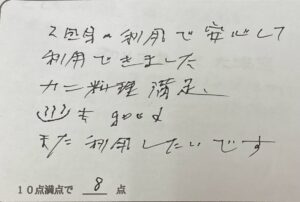 2回目の利用で安心して
利用できました
カニ料理満足、
も good
また利用したいです
10点満点で 8 点